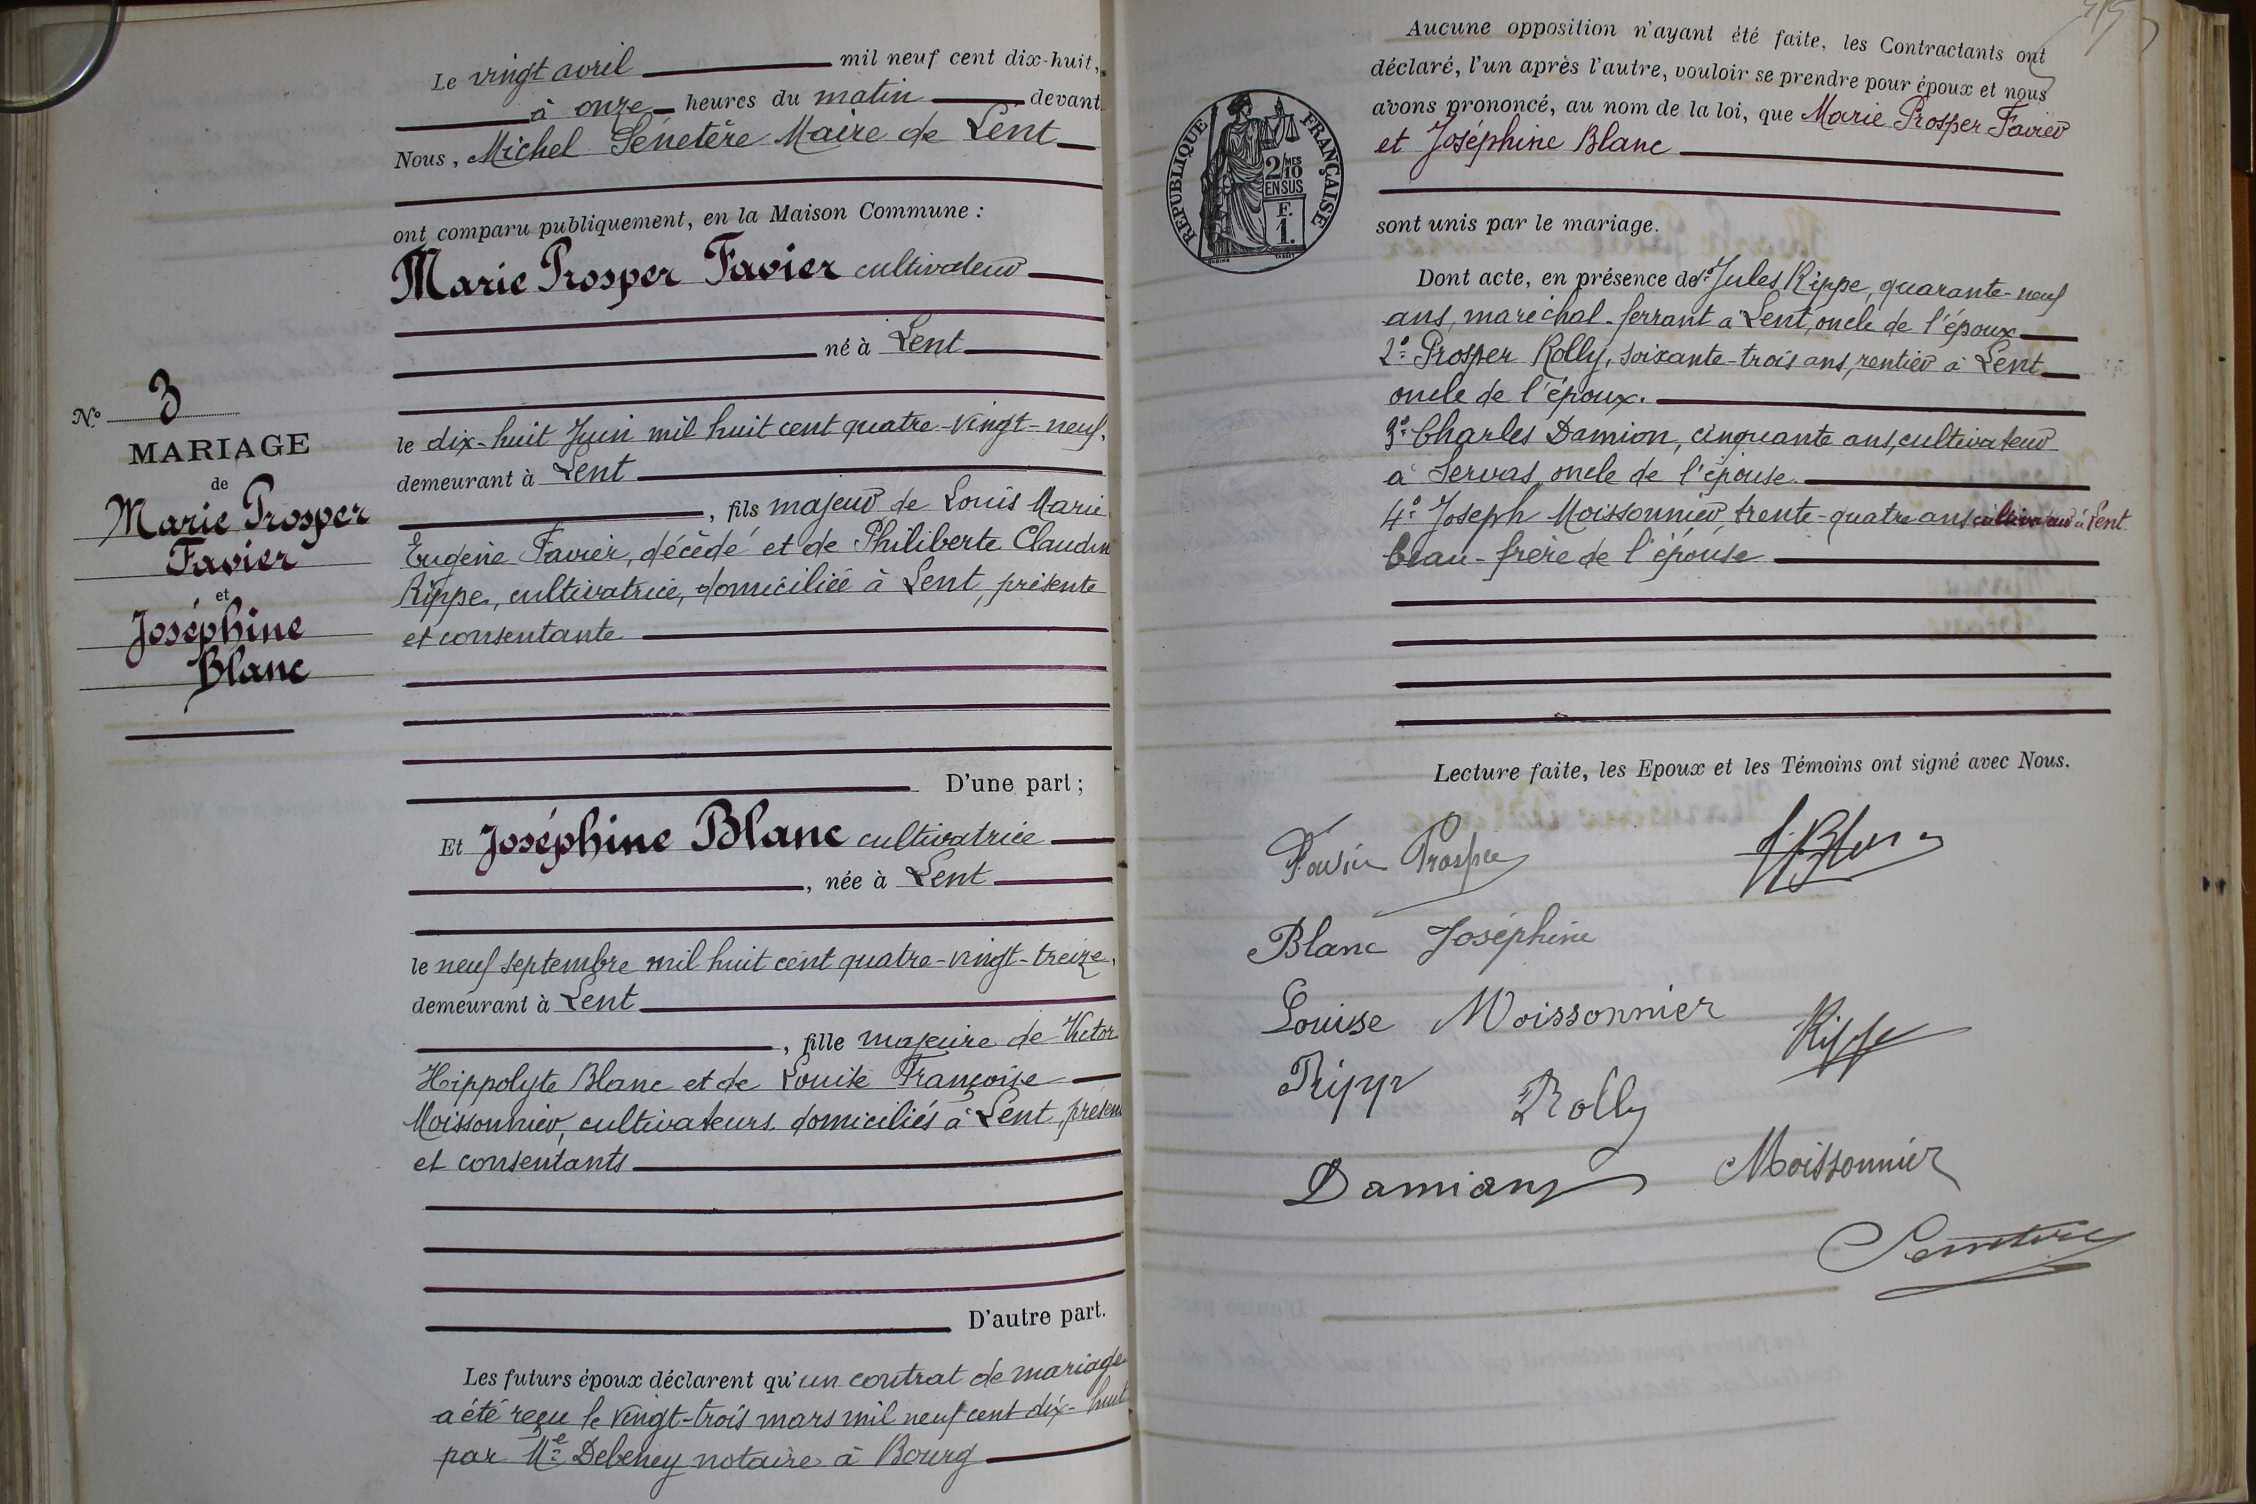 Le vingt avril mil neuf cent dix-huit,
à onze heures du matin devant
Nous, Michel Sénetère Maire de Lent
ont comparu publiquement, en la Maison Commune :
Marie Prosper Favier cultivateur
né à Lent
le dix-huit Juin mil huit cent quatre-vingt-neuf,
demeurant à Lent
, fils majeur de Louis Marie
Eugène Favier, décédé et de Philiberte Claudine
Rippe, cultivatrice, domiciliée à Lent, présente
et consentante
D'une part ;
Et Joséphine Blanc cultivatrice
, née à Lent
le neuf septembre mil huit cent quatre-vingt-treize,
demeurant à Lent
, fille majeure de Victor
Hippolyte Blanc et de Louise Françoise
Moissonnier, cultivateurs domiciliés à Lent, présents
et consentants
D'autre part.
Les futurs époux déclarent qu'un contrat de mariage
a été reçu le vingt-trois mars mil neuf cent dix-huit
par Me Debeney notaire à Bourg
No 3
MARIAGE
de
Marie Prosper
Favier
et
Joséphine
Blanc
Aucune opposition n'ayant été faite, les Contractants ont
déclaré, l'un après l'autre, vouloir se prendre pour époux et nous
avons prononcé, au nom de la loi, que Marie Prosper Favier
et Joséphine Blanc
sont unis par le mariage.
RÉPUBLIQUE FRANÇAISE
2/10 MES
EN SUS
F.
1.
Dont acte, en présence de 1° Jules Rippe, quarante-neuf
ans, maréchal-ferrant à Lent, oncle de l'époux
2° Prosper Rolly, soixante-trois ans, rentier à Lent
oncle de l'époux.
3° Charles Damion, cinquante ans, cultivateur
à Servas, oncle de l'épouse
4° Joseph Moissonnier, trente-quatre ans cultivateur à Lent
beau-frère de l'épouse
Lecture faite, les Epoux et les Témoins ont signé avec Nous.
Favier Prosper
Blanc Joséphine
Louise Moissonnier
Rippe
Ripp
Rolly
Damians
Moissonnier
Senetère